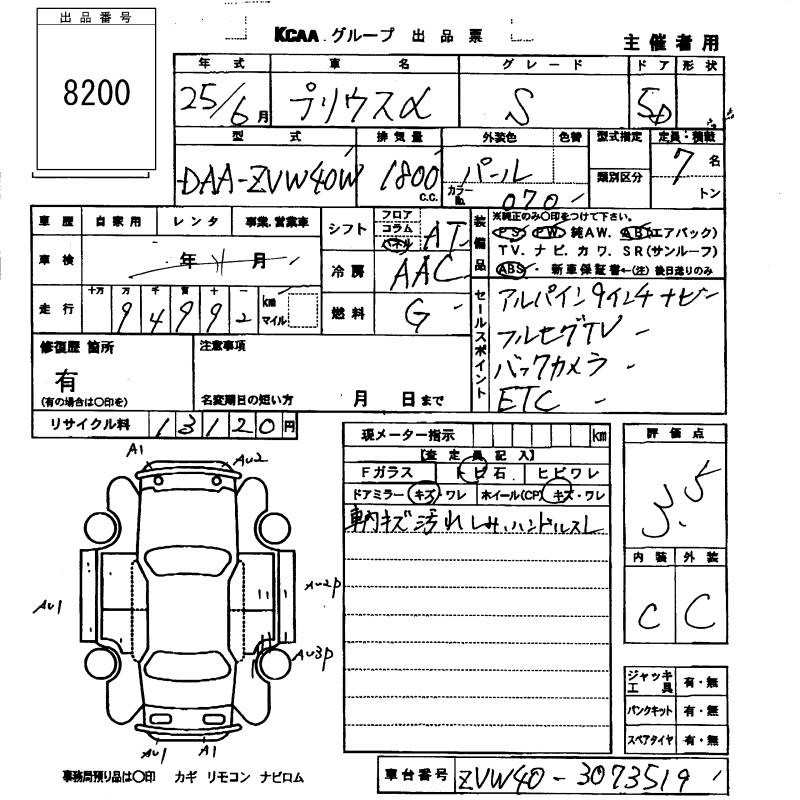 出品番号
8200
KCAA グループ 出品票
主催者用
年式 車名 グレード ドア 形状
25/6月 プリウスα S 5D
型式 排気量 外装色 色替 型式指定 定員・積載
DAA-ZVW40W 1800 c.c. パール 類別区分 7名
カラーNo. 070 トン
車歴 自家用 レンタ 事業.営業車
シフト フロア コラム パネル AT
装備品 ※純正のみ○印をつけて下さい。
PS PW 純AW. AB(エアバック)
TV. ナビ. カワ. SR(サンルーフ)
ABS ・ 新車保証書←(注) 後日送りのみ
車検 年 月
冷房 AAC
走行 十万 万 千 百 十 一 km マイル
94992
燃料 G
セールスポイント
アルパイン9インチナビ
フルセグTV
バックカメラ
ETC
修復歴 箇所 注意事項
有
(有の場合は○印を) 名変期日の短い方 月 日まで
リサイクル料 13120円
現メーター指示 km
【査定員記入】
Fガラス トビ石 ヒビワレ
ドアミラー キズ・ワレ ホイール(CP) キズ・ワレ
車内キズ汚れ しみ、ハンドルスレ
評価点
3.5
内装 外装
C C
A1 AU2
AU1 AU2P
AU3P
AU1 A1
ジャッキ工具 有・無
パンクキット 有・無
スペアタイヤ 有・無
事務局預り品は○印 カギ リモコン ナビロム
車台番号 ZVW40-3073519